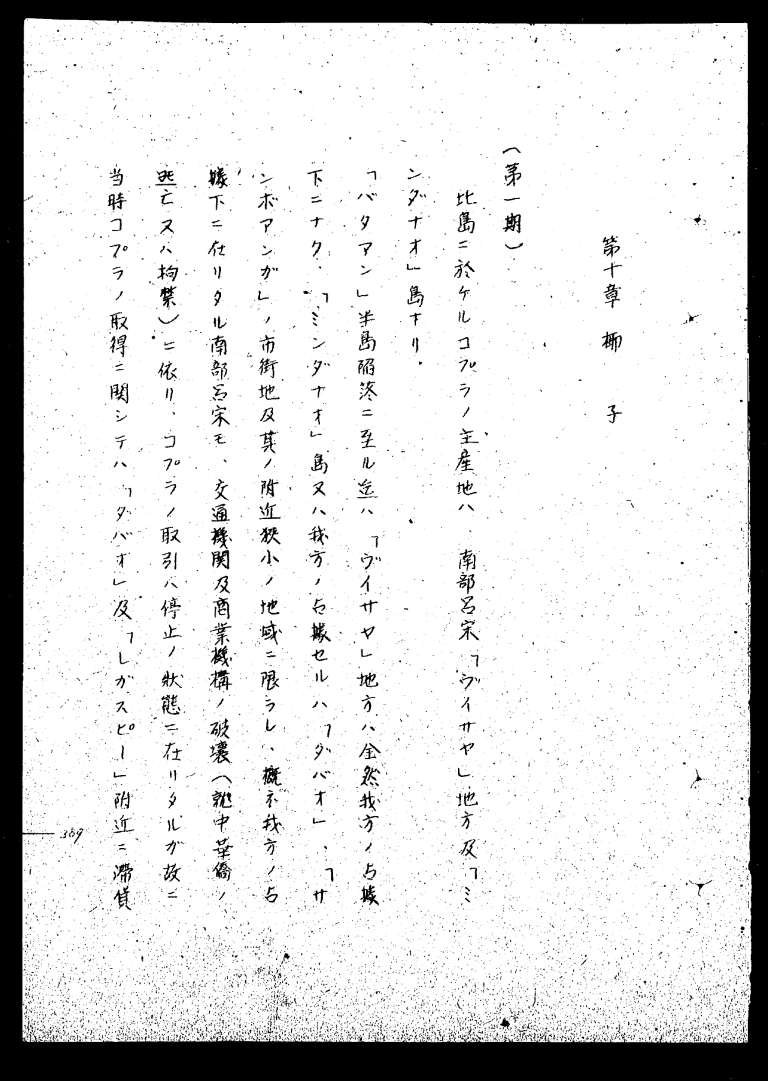 第十章 椰子
(第一期)
比島ニ於ケルコプラノ主産地ハ、南部呂宋「ヴイサヤ」地方及「ミ
ンダナオ」島ナリ.
「バタアン」半島陥落ニ至ル迄ハ「ヴイサヤ」地方ハ全然我方ノ占據
下ニナク、「ミンダナオ」島又ハ我方ノ占據セルハ「ダバオ」、「サ
ンボアンガ」ノ市街地及其ノ附近狭小ノ地域ニ限ラレ、概ネ我方ノ占
據下ニ在リタル南部呂宋モ、交通機関及商業機構ノ破壊(就中華僑ノ
死亡又ハ拘禁)ニ依リ、コプラノ取引ハ停止ノ状態ニ在リタルガ故ニ
当時コプラノ取得ニ関シテハ「ダバオ」及「レガスピー」附近ニ滞貨
389